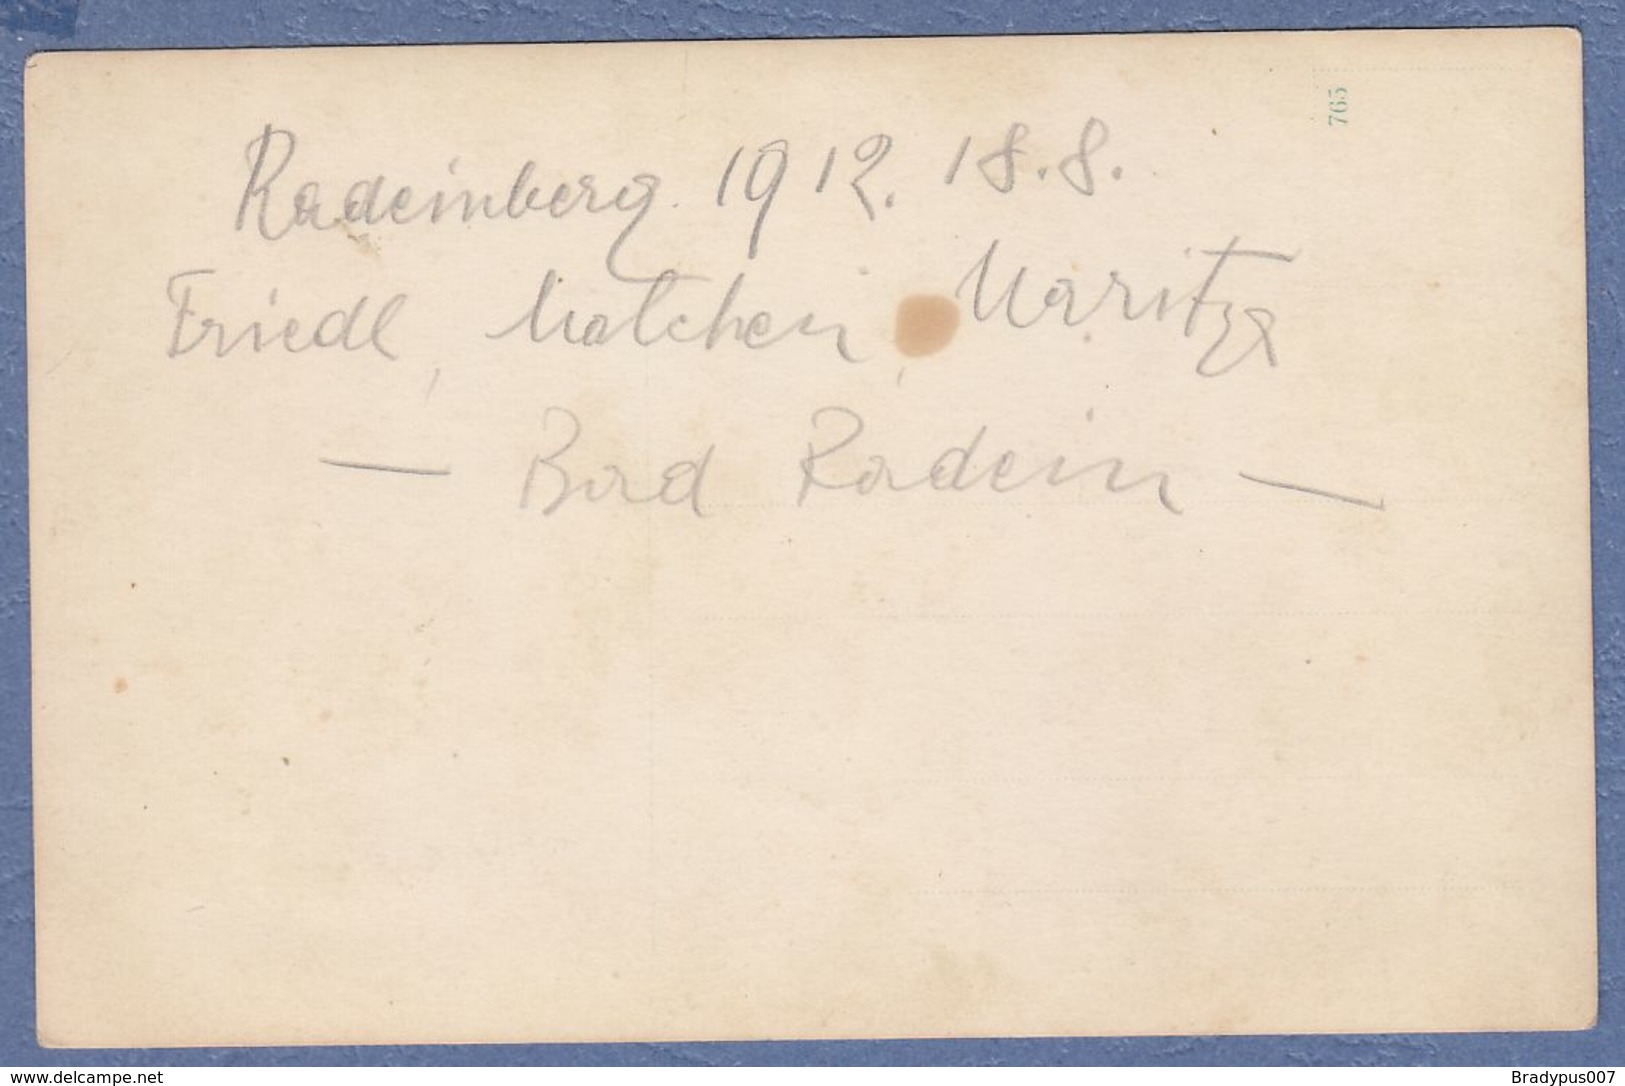 765
Radeinberg. 1912. 18.8.
Friedl, Matchen, Maritza
— Bad Radein —
www.delcampe.net
Bradypus007